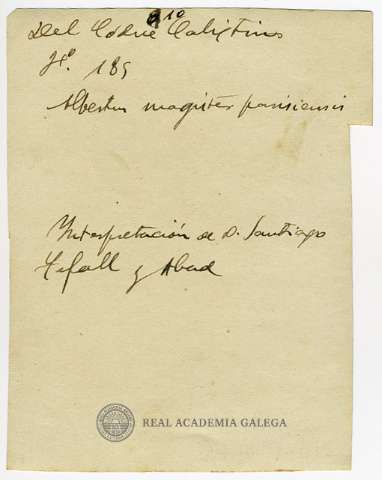 Del Códice Calixtino
Fº. 185
Albertus magister parisiensis
Interpretación de D. Santiago
Tafall y Abad
REAL ACADEMIA GALEGA